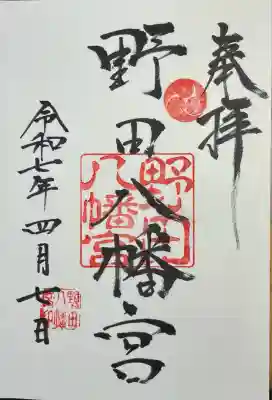 奉拝
野田八幡宮
野田八幡宮
令和七年四月七日